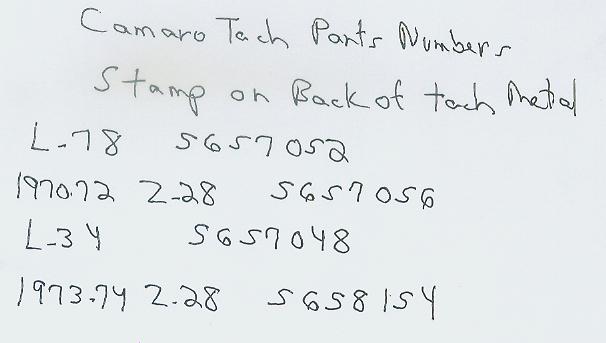 Camaro Tach Parts Numbers
Stamp on Back of tach Metal
L-78 5657052
1970.72 Z-28 5657056
L-34 5657048
1973.74 Z.28 5658154